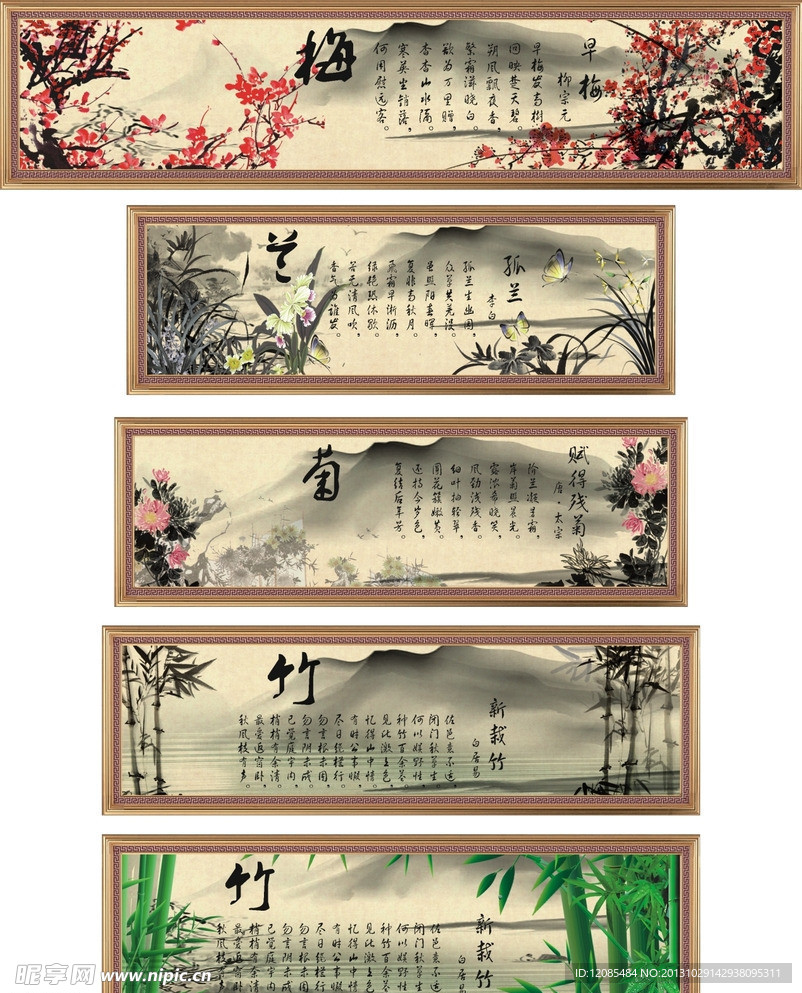 梅
早梅
柳宗元
早梅发高树
回映楚天碧。
朔风飘夜香，
繁霜滋晓白。
欲为万里赠，
杳杳山水隔。
寒英坐销落，
何用慰远客。
兰
孤兰
李白
孤兰生幽园，
众草共芜没。
虽照阳春晖，
复悲高秋月。
飞霜早淅沥，
绿艳恐休歇。
若无清风吹，
香气为谁发。
菊
赋得残菊
唐·太宗
阶兰凝曙霜，
岸菊照晨光。
露浓希晓笑，
风劲浅残香。
细叶抽轻翠，
圆花簇嫩黄。
还持今岁色，
复结后年芳。
竹
新栽竹
白居易
佐邑意不适，
闭门秋草生。
何以娱野性，
种竹百余茎。
见此溪上色，
忆得山中情。
有时公事暇，
尽日绕栏行。
勿言根未固，
勿言阴未成。
已觉庭宇内，
稍稍有余清。
最爱近窗卧，
秋风枝有声。
竹
新栽竹
白居易
佐邑意不适
闭门秋草生
何以娱野性
种竹百余茎
见此溪上色
忆得山中情
有时公事暇
尽日绕栏行
勿言根未固
勿言阴未成
已觉庭宇内
稍稍有余清
最爱近窗卧
秋风枝有声
昵享网 www.nipic.cn
ID:12085484 NO:20131029142938095311